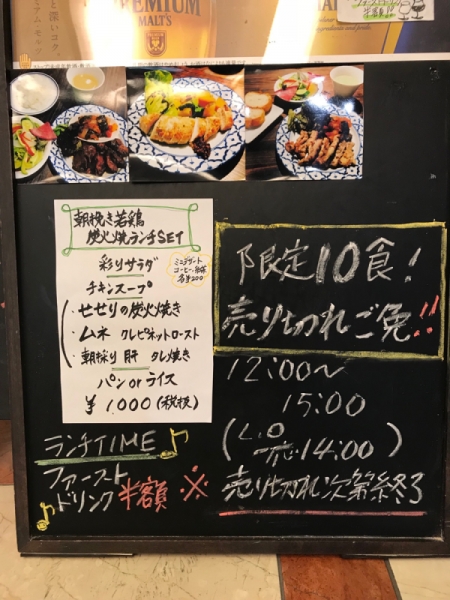 PREMIUM
MALT'S
朝挽き若鶏
炭火焼ランチSET
彩りサラダ
チキンスープ
・せせりの炭火焼き
・ムネ クレピネットロースト
・朝採り肝 タレ焼き
パン or ライス
¥1,000(税抜)
ミニデザート
各¥200
限定10食!
売り切れご免!!
12:00〜
15:00
(L.O
14:00)
売り切れ次第終了
ランチTIME
ファースト
ドリンク半額※